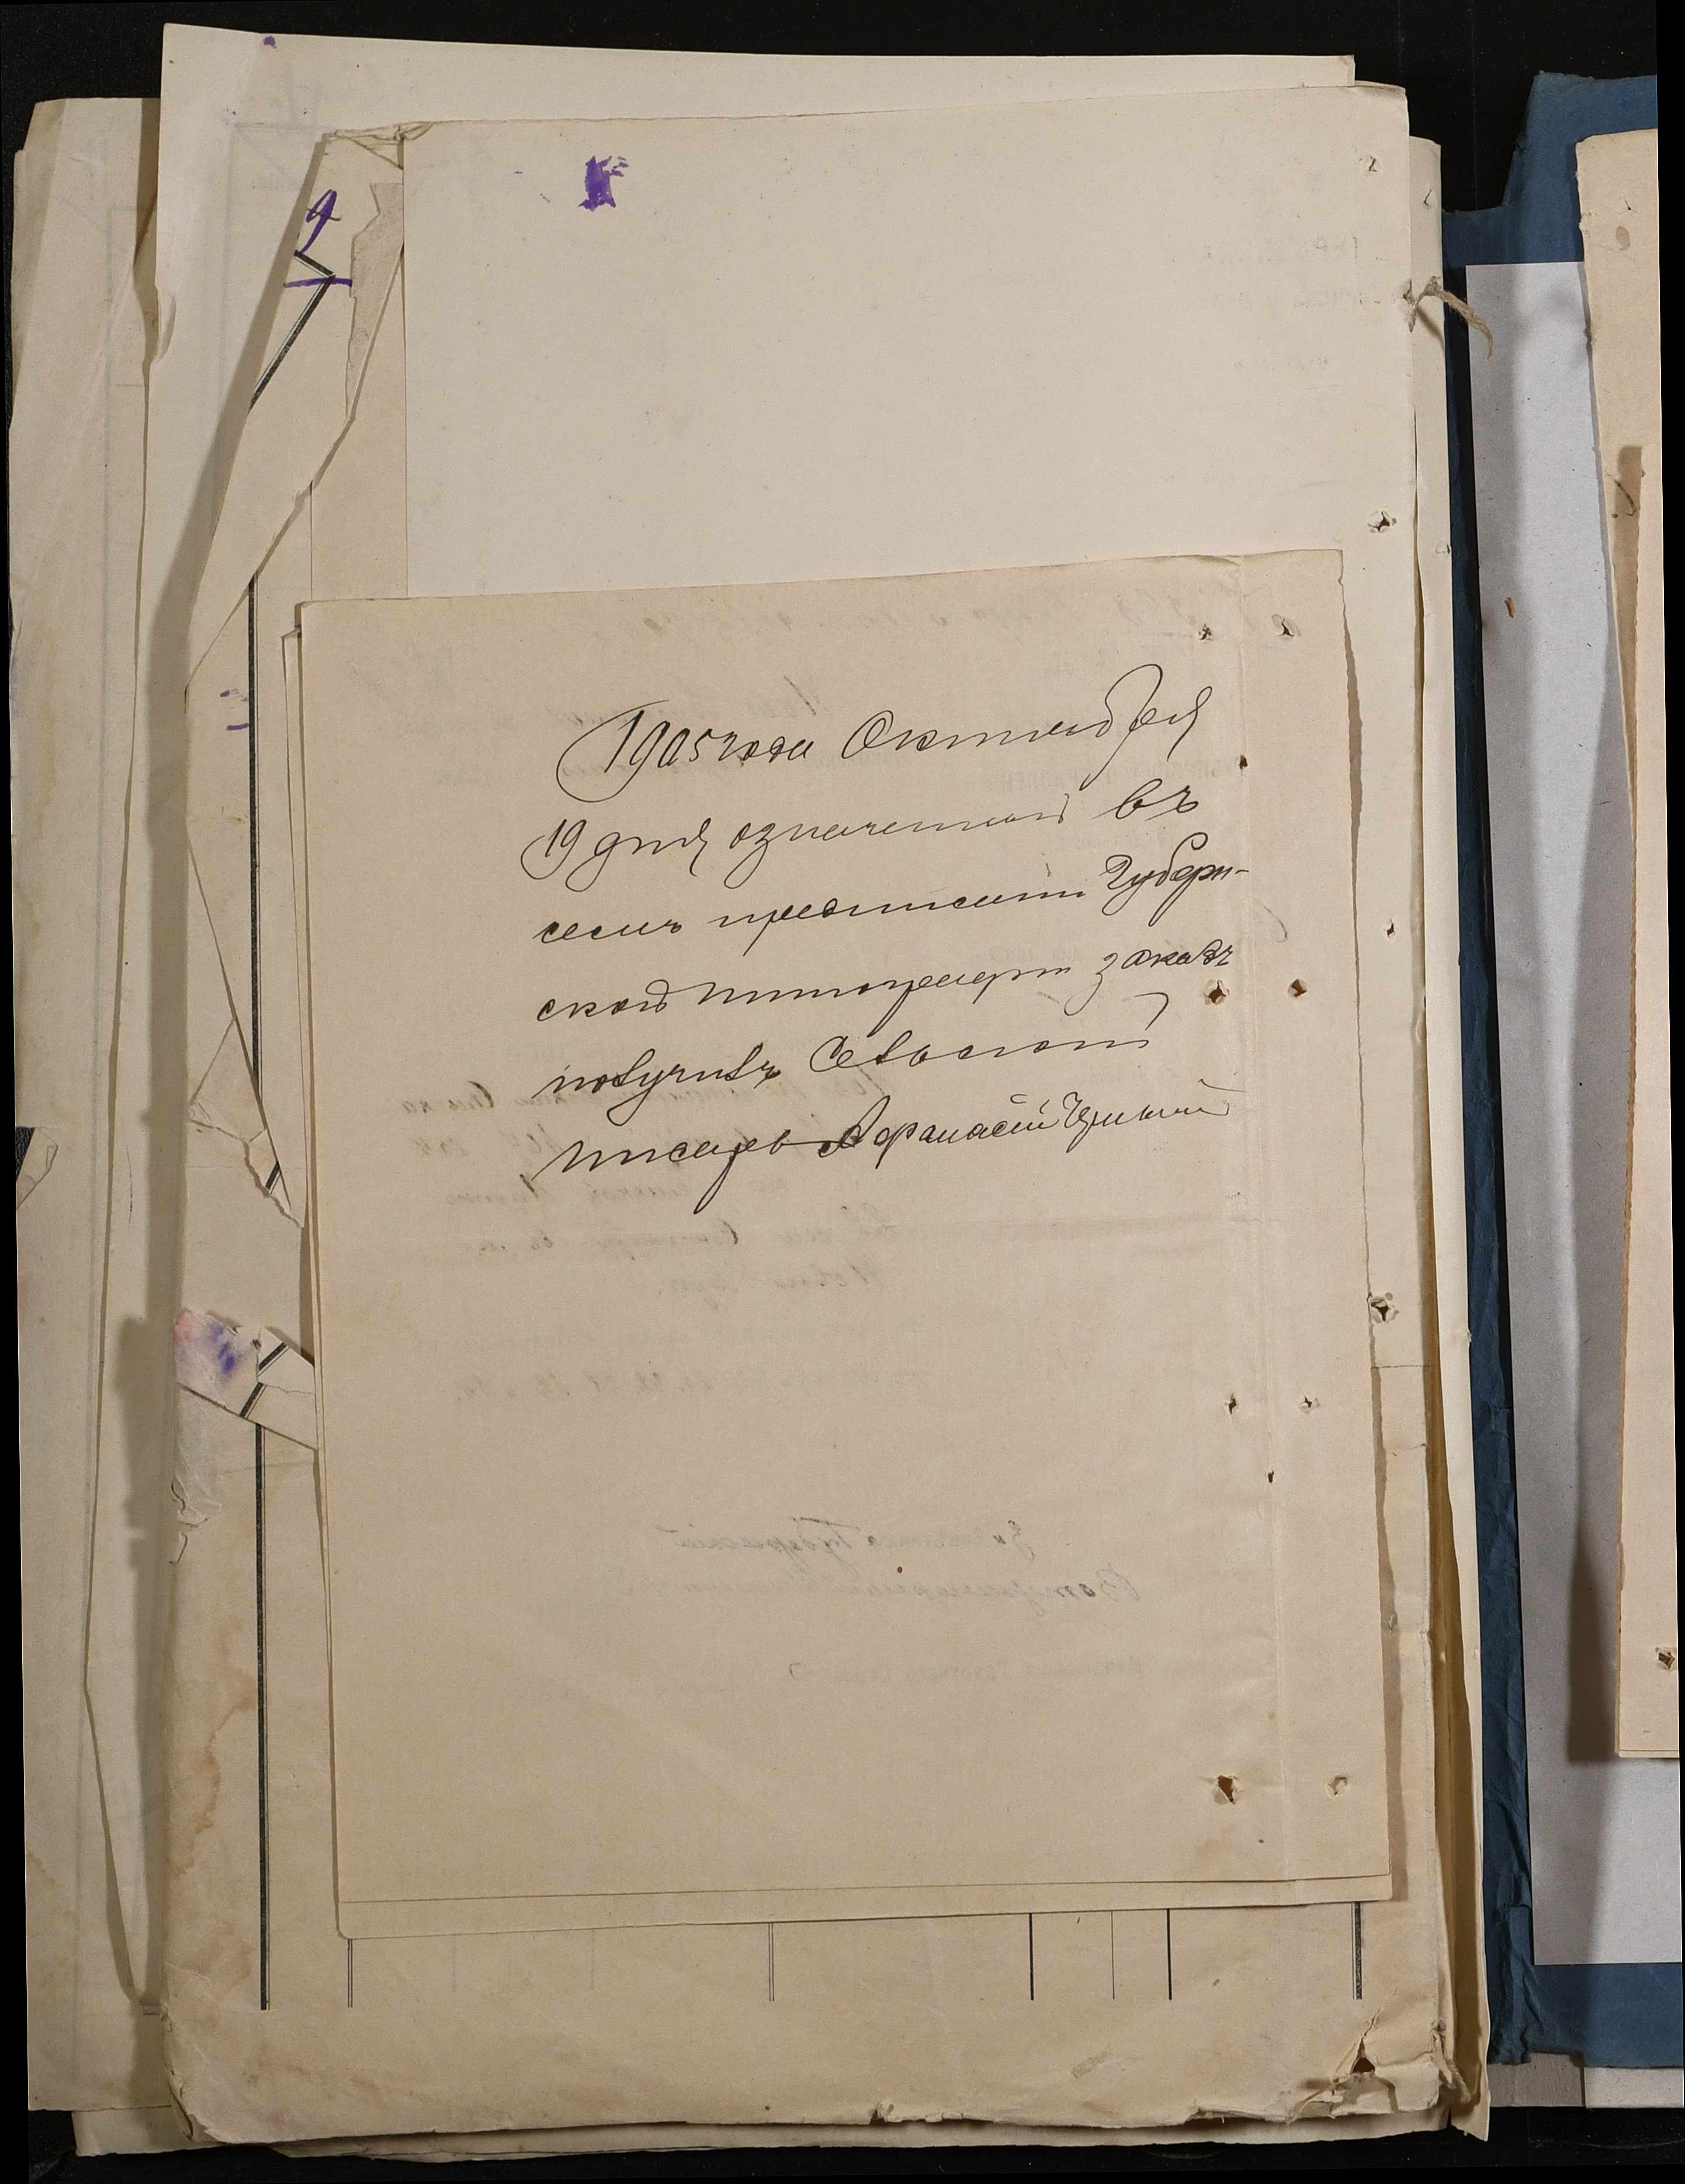 1905 года Октября
19 дня означенный въ
семъ предписании Губерн-
ской типографіи заказъ
получилъ Сельскій
писарь Афанасій
9